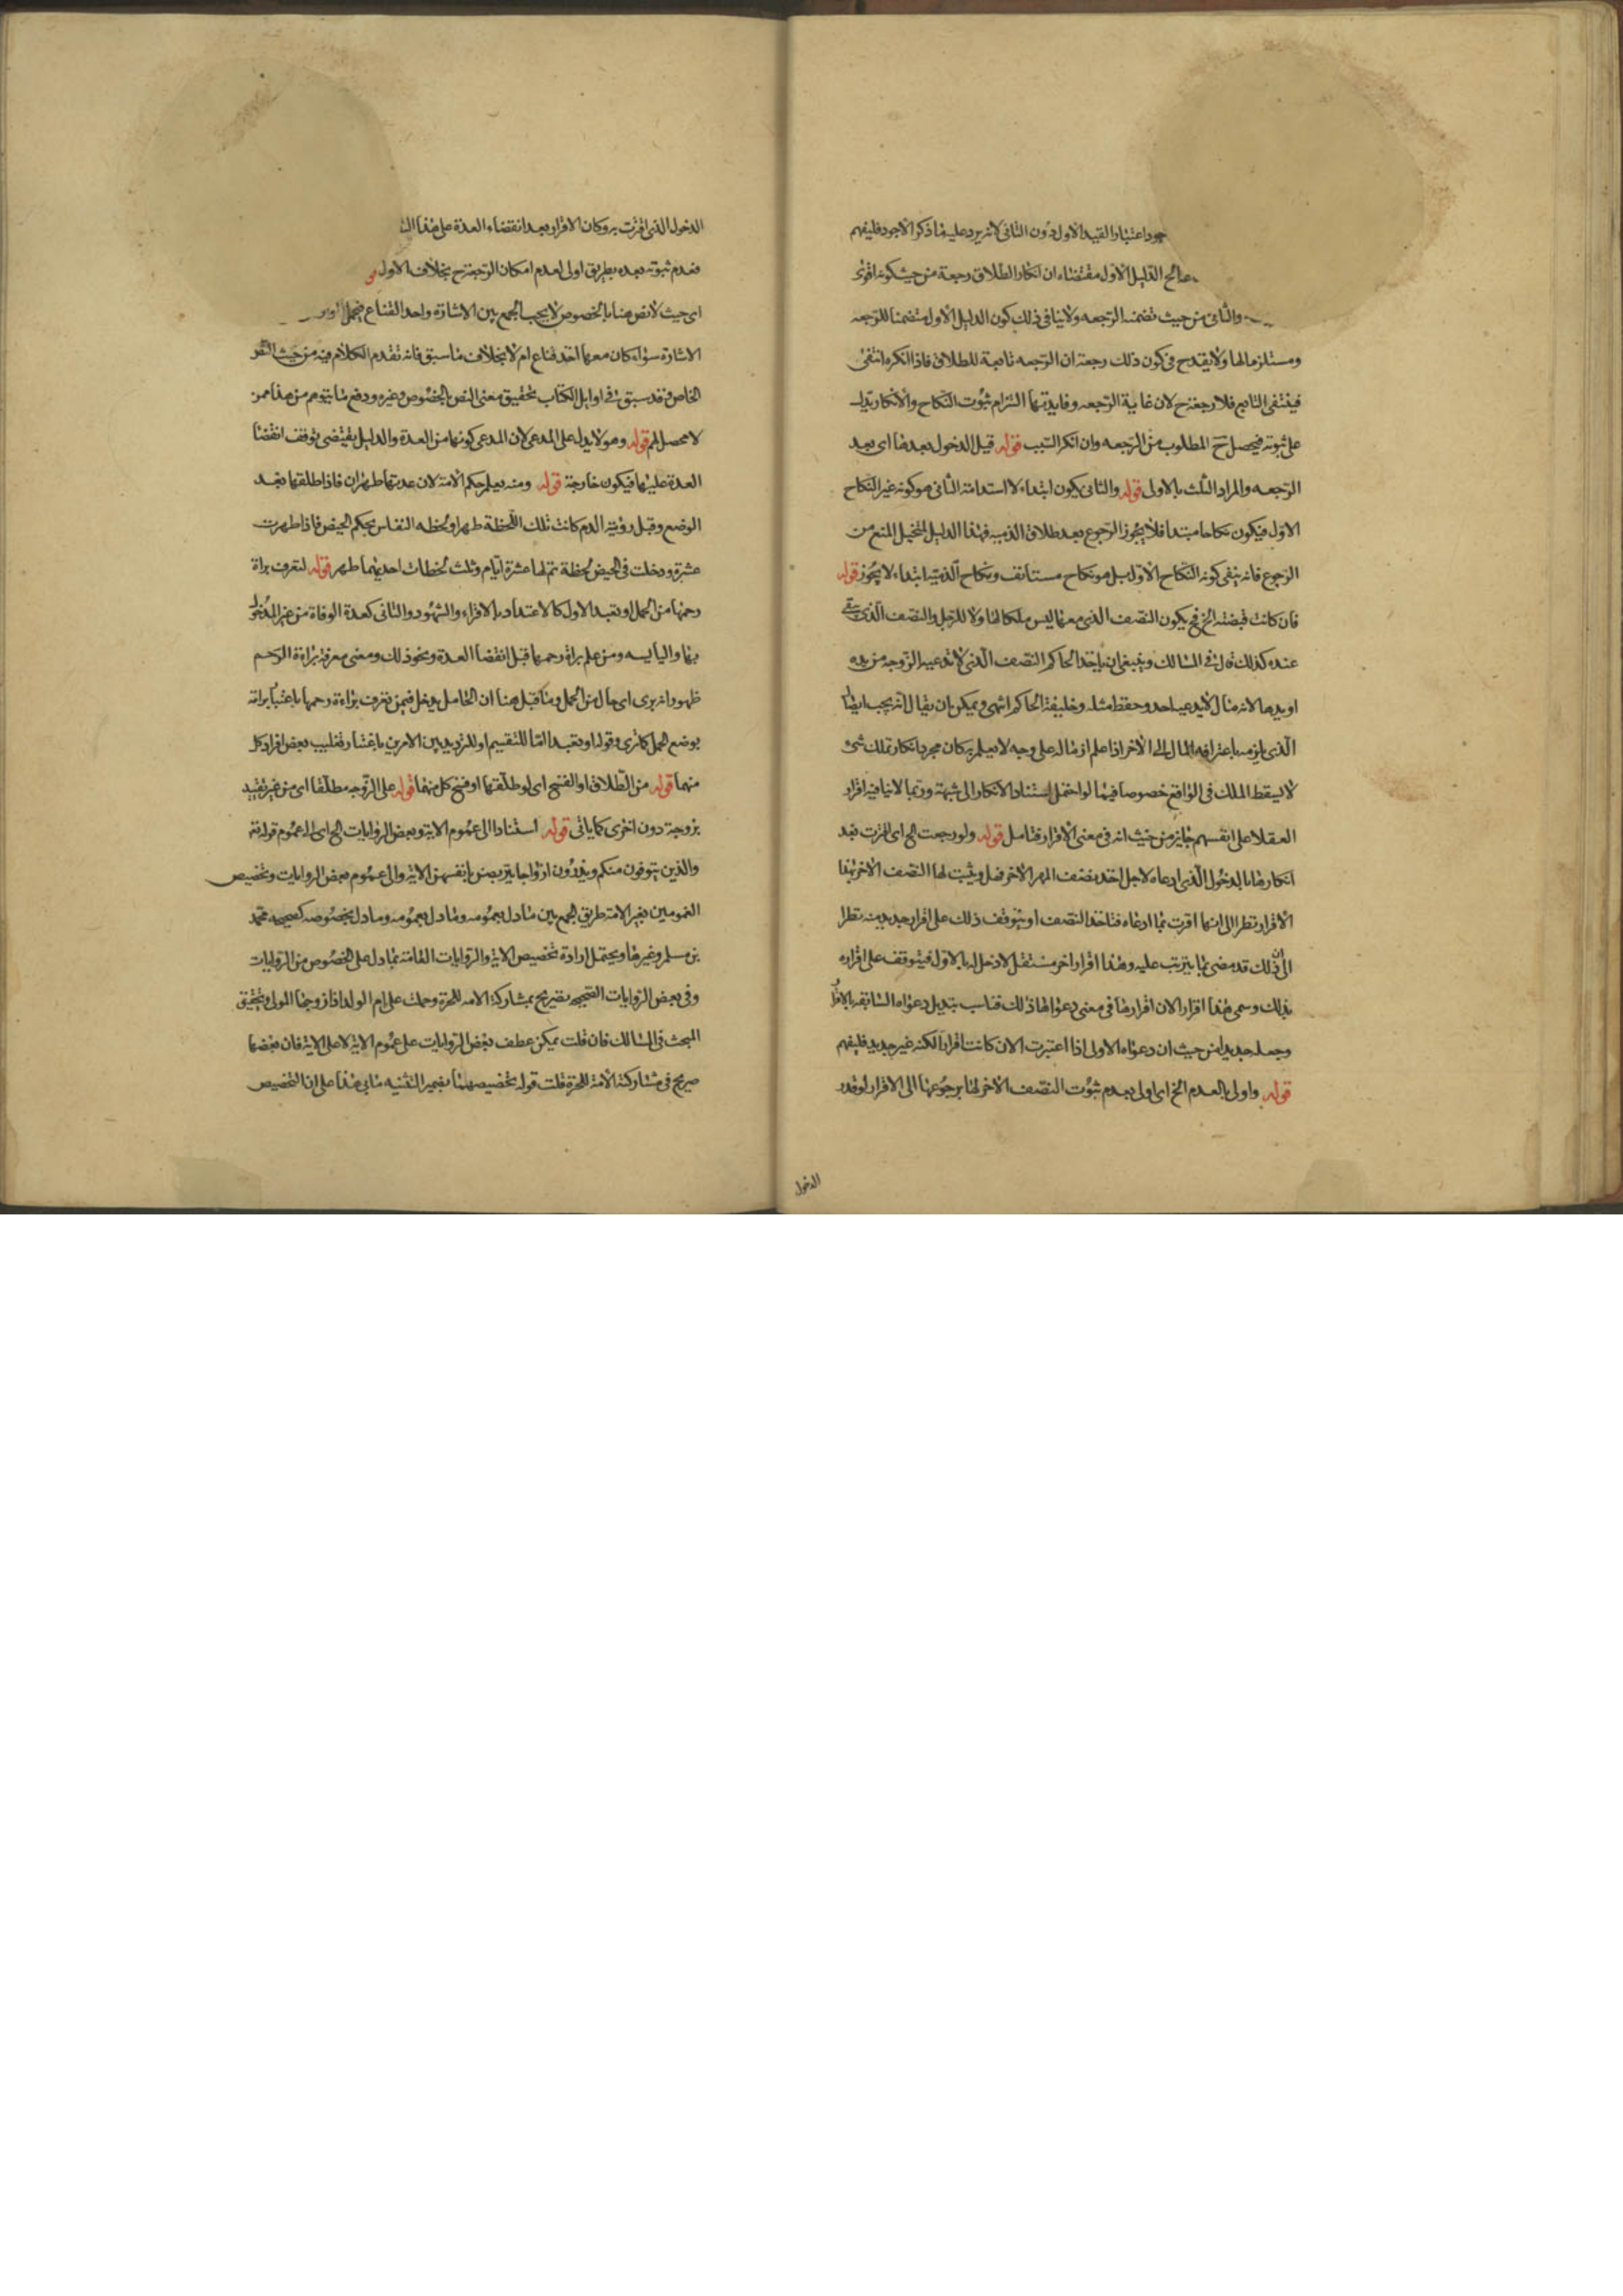 جود اعتبار القيد الاول دون الثانى لانه يرد عليه ما ذكر الاجود فليفهم
الدليل الاول مقتضاه ان انكار الطلاق رجعة من حيث كونه اقوى
والثانى من حيث تضمنه الرجعه ولا ينافى ذلك كون الدليل الاول متضمنا للرجعه
ومستلزما لها ولا يقدح فى كون ذلك رجعة ان الرجعه تابعة للطلاق فاذا انكره انتفى
فينتفى التابع فلا رجعة ح لان غاية الرجعه وفايدتها التزام ثبوت النكاح والانكار يدل
على ثبوته فيحصل ح المطلوب من الرجعه وان انكر السبب قوله قبل الدخول بعدها اى بعد
الرجعه والمراد الثلث بالاولى قوله والثانى يكون ابتداء لا استدامة الثانى هو كونه غير النكاح
الاول فيكون نكاحا مبتدا فلا يجوز الرجوع بعد طلاق الذميه فهذا الدليل لتخيل المنع من
الرجوع فانه ينفى كونه النكاح الاول بل هو نكاح مستانف ونكاح الذميه ابتداء لا يجوز قوله
فان كانت قبضته الخ فح يكون النصف الذى معها ليس ملكا لها ولا للرجل والنصف الذى بقى
عنده كذلك قال فى المسالك وينبغى ان ياخذ الحاكم النصف الذى لا تدعيه الزوجه من يده
او يدها لانه مال لا يدعيه احد وحفظ مثله وظيفة الحاكم انتهى ويمكن ان يقال انه يجب ايضا
الذى يلزمه باعترافه المال الى الاخر اذا علم انه ماله على وجه لا يعلم به كان مجرد انكار تملك شئ
لا يسقط الملك فى الواقع خصوصا فيما لو احتمل استناد الانكار الى شبهة وربما لا ينافيه اقرار
العقلا على انفسهم جايز من حيث انه فى معنى الاقرار فتامل قوله ولو رجعت الخ اى اقرت بعد
انكارها بالدخول الذى ادعاه لاجل اخذ نصف المهر الاخر فهل يثبت لها النصف الاخر بهذا
الاقرار نظرا الى انها اقرت بما ادعاه فتاخذ النصف او يتوقف ذلك على اقرار جديد منه نظرا
الى ان ذلك قد مضى بما يترتب عليه وهذا اقرار اخر مستقل لا دخل له بالاول فيتوقف على اقراره
بذلك وسمى هذا اقرارا لان اقرارها فى معنى دعواها ذلك فناسب تبديل دعواه السابقه بالاقرار
وجعله جديدا من حيث ان دعواه الاولى اذا اعتبرت الان كانت اقرارا لكنه غير جديد فليفهم
قوله واولى بالعدم الخ اى اولى بعدم ثبوت النصف الاخر لها برجوعها الى الاقرار لوقدر
الدخول
الدخول الذى اقرت به وكان الاقرار بعد انقضاء العدة على هذا
فعدم ثبوته بعده بطريق اولى لعدم امكان الرجعة ح بخلاف الاول
اى حيث لا نص هنا بالخصوص لا يجب الجمع بين الاشارة واخذ القناع فيحمل
الاشارة سواء كان معها اخذ قناع ام لا بخلاف ما سبق فانه تقدم الكلام فيه من حيث النص
الخاص وقد سبق فى اوايل الكتاب تحقيق معنى النص بالخصوص وغيره ودفع ما يتوهم من هذا ممن
لا محصل لهم قوله وهو لا يدل على المدعى لان المدعى كونها من العدة والدليل يقتضى توقف انقضا
العدة عليها فيكون خارجة قوله ومنه يعلم حكم الامة لان عدتها طهران فاذا طلقها بعد
الوضع وقبل رؤية الدم كانت تلك اللحظة طهرا ولحظه النفاس بحكم الحيض فاذا طهرت
عشرة ودخلت فى الحيض لحظة تم لها عشرة ايام وثلث لحظات احديهما طهر قوله لتعرف براة
رحمها من الحمل او تعبد الاول كالاعتداد بالاقراء والشهود والثانى كعدة الوفاة من غير المدخول
بها واليايسه ومن علم براة رحمها قبل انقضا العدة ونحو ذلك ومعنى معرفة براءة الرحم
ظهور انه برى اى خال من الحمل وما قيل هنا ان الحامل يدخل فيمن تعرف براءة رحمها باعتبار براته
بوضع الحمل كما ترى وقوله او تعبد اما للتقسيم او للترديد بين الامرين باعتبار تغليب بعض افراد كل
منهما قوله من الطلاق او الفسخ اى لو طلقها او فسخ كل منهما قوله على الزوجه مطلقا اى من غير تقييد
بزوجة دون اخرى كما ياتى قوله استنادا الى عموم الاية وبعض الروايات الخ اى الى عموم قوله تعه
والذين يتوفون منكم ويذرون ازواجا يتربصن بانفسهن الاية والى عموم بعض الروايات وتخصيص
العمومين بغير الامة طريق الجمع بين ما دل بعمومه وما دل بعمومه وما دل بخصوصه كصحيحه محمد
بن مسلم وغيرها ويحتمل ارادة تخصيص الاية والروايات العامة بما دل على الخصوص من الروايات
وفى بعض الروايات الصحيحه تصريح بمشاركة الامه للحرة وحملت على ام الولد اذا زوجها المولى وتحقيق
المبحث فى المسالك فان قلت يمكن عطف بعض الروايات على عموم الاية لا على الاية فان بعضها
صريح فى مشاركة الامة للحرة قلت قوله تخصيصهما بضمير التثنيه يابى هذا على ان التخصيص